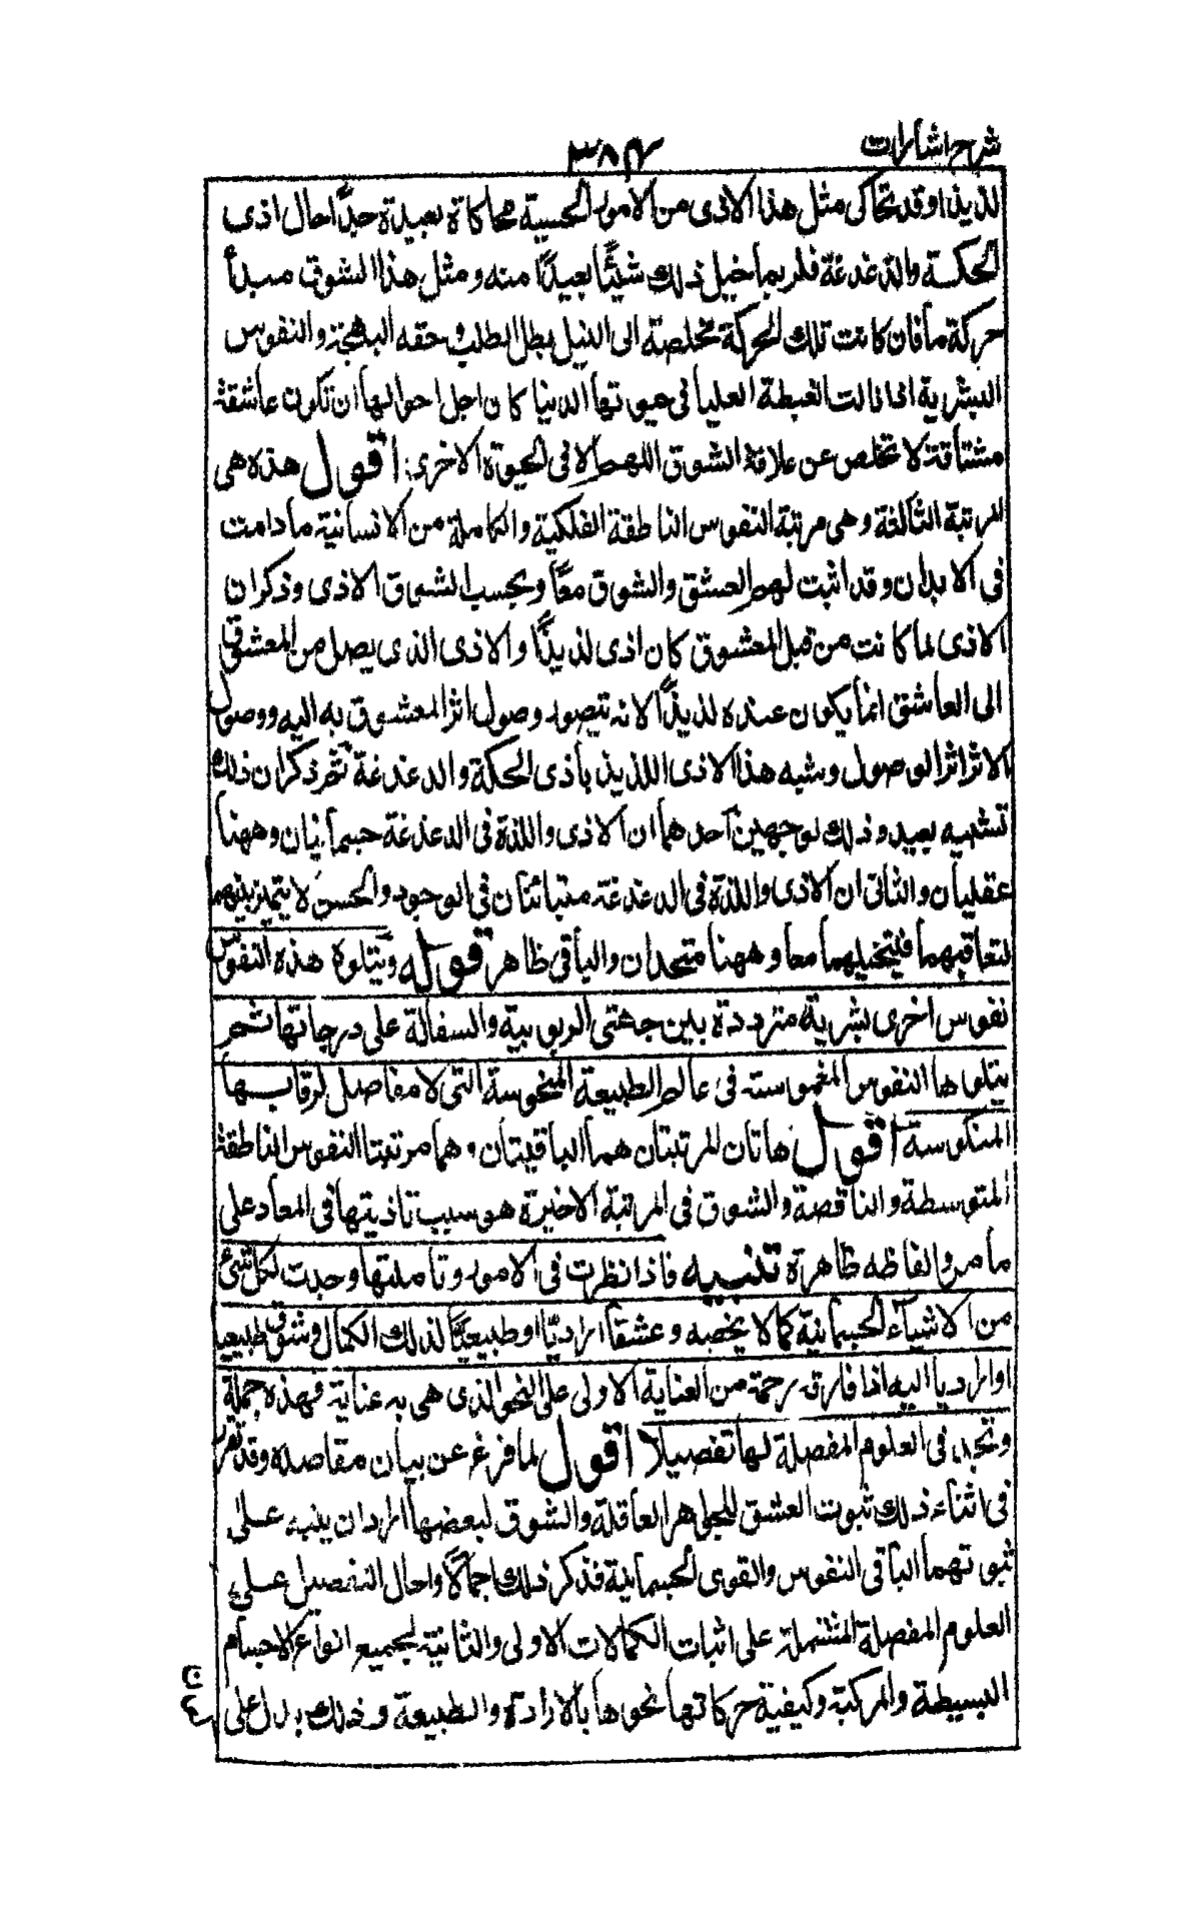 شرح اشارات
٣٨۴
لذيذا وقد تحاكى مثل هذا الاذى من الامور الحسية محاكاة بعيدة جدًّا حال اذى
الحكة والدغدغة فلربما خيل ذلك شيئًا بعيدًا منه ومثل هذا الشوق مبدأ
حركة ما فان كانت تلك الحركة مخلصة الى النيل بطل الطلب وحقه البهجة والنفوس
البشرية اذا نالت الغبطة العليا فى حيوتها الدنيا كان اجل احوالها ان تكون عاشقة
مشتاقة لا تخلص عن علاقة الشوق اللهم الا فى الحيوة الاخرى: اقول هذه هى
المرتبة الثالثة وهى مرتبة النفوس الناطقة الفلكية والكاملة من الانسانية ما دامت
فى الابدان وقد اثبت لهم العشق والشوق معًا وبحسب الشوق الاذى وذكر ان
الاذى لما كانت من قبل المعشوق كان اذى لذيذًا والاذى الذى يصل من المعشوق
الى العاشق انما يكون عنده لذيذًا لانه تتصور وصول اثر المعشوق به اليه ووصول
الاثر اثر الوصول وشبه هذا الاذى اللذيذ باذى الحكة والدغدغة ثم ذكر ان ذلك
تشبيه بعيد وذلك لوجهين احدهما ان الاذى واللذة فى الدغدغة جسمانيان وههنا
عقليان والثانى ان الاذى واللذة فى الدغدغة متبائنان فى الوجود والحس لا يتميز بينهما
لتعاقبهما فيتخيلهما معا وههنا متحدان والباقى ظاهر قوله ويتلوه هذه النفوس
نفوس اخرى بشرية مترددة بين جهتى الربوبية والسفالة على درجاتها ثم
يتلوها النفوس المغموسة فى عالم الطبيعة المنحوسة التى لا مفاصل لرقابها
المنكوسة اقول هاتان المرتبتان هما الباقيتان وهما مرتبتا النفوس الناطقة
المتوسطة والناقصة والشوق فى المرتبة الاخيرة هو سبب تاذيتها فى المعاد على
ما مر والفاظه ظاهرة تنبيه فاذا نظرت فى الامور وتاملتها وجدت لكل شئ
من الاشياء الجسمانية كمالا يخصه وعشقا اراديًّا او طبيعيًّا لذلك الكمال وشوق طبيعيا
او اراديا اليه اذا فارقه رحمة من العناية الاولى على النحو الذى هى به عناية فهذه جملة
وتجد فى العلوم المفصلة لها تفصيلا اقول لما فرغ عن بيان مقاصده وقد تقرر
فى اثناء ذلك ثبوت العشق للجواهر العاقلة والشوق لبعضها اراد ان ينبه على
ثبوتهما لباقى النفوس والقوى الجسمانية فذكر ذلك اجمالًا واحال التفصيل على
العلوم المفصلة المشتملة على اثبات الكمالات الاولى والثانية لجميع انواع الاجسام
البسيطة والمركبة وكيفية حركاتها نحوها بالارادة والطبيعة وذلك يدل على